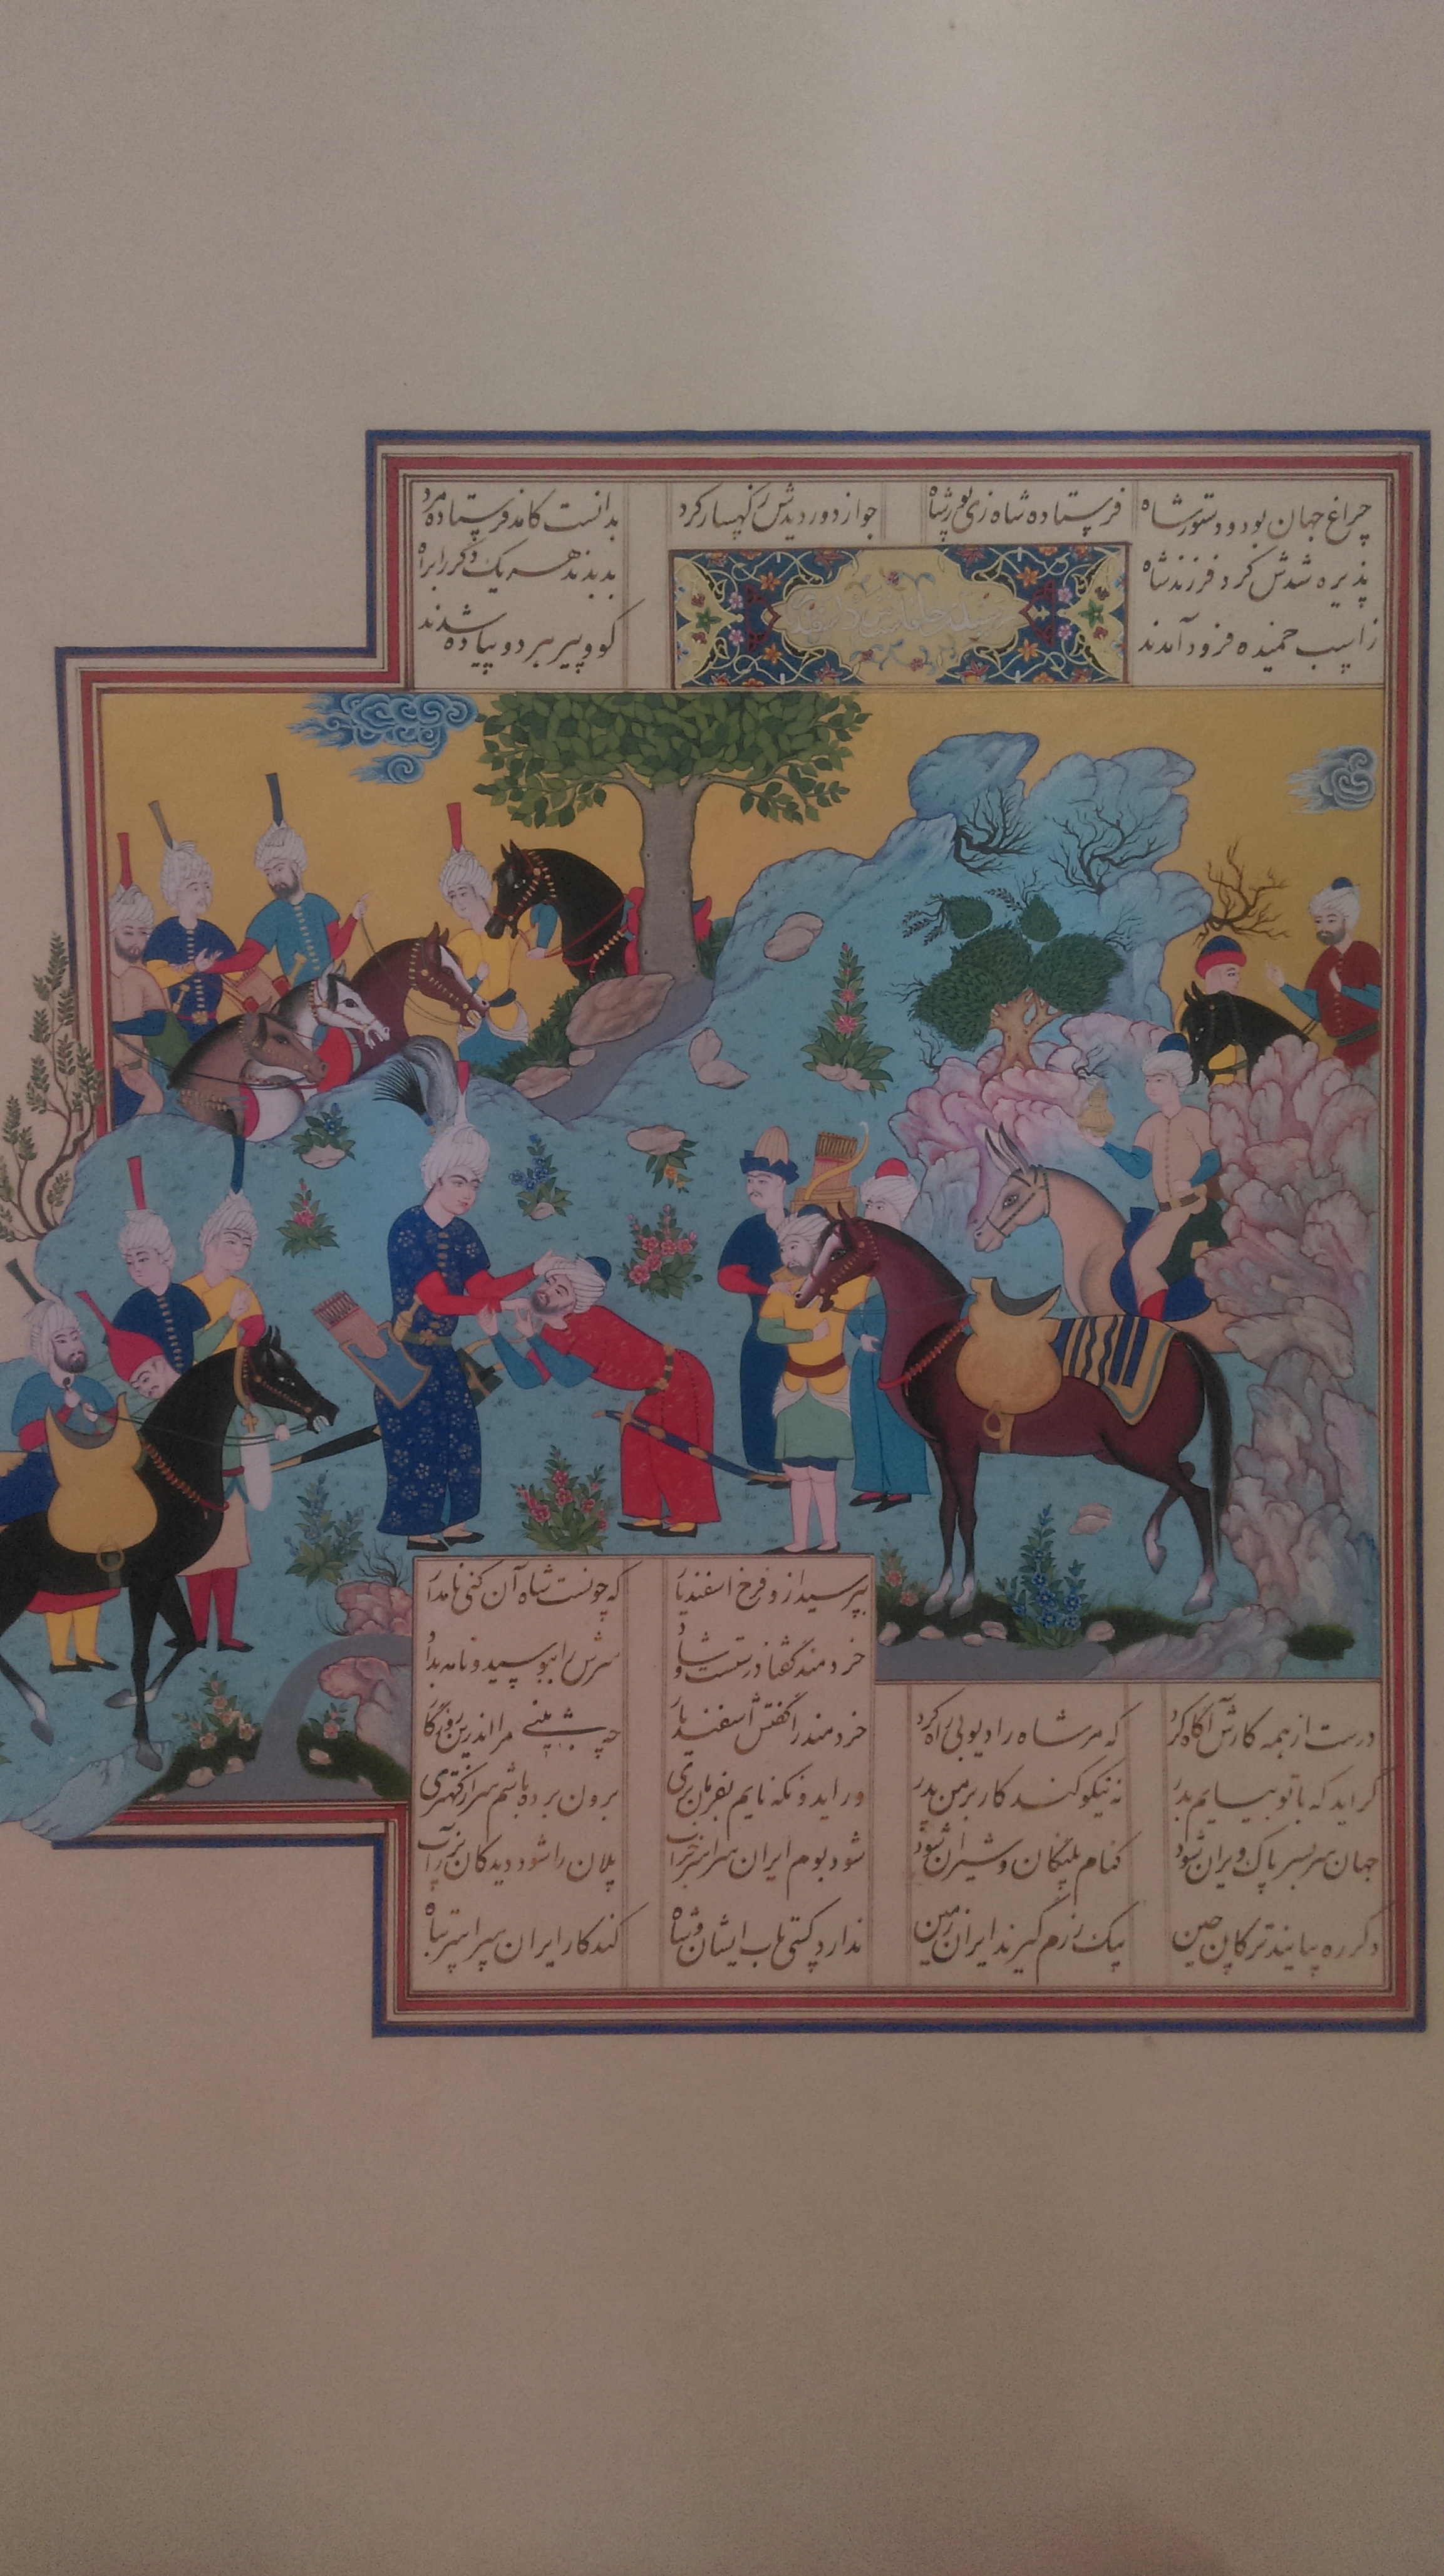 چراغ جهان بود و دستور شاه فرستاده شاه زی پور شاه چو از دور دیدش ز کهسار کرد بدانست کامد فرستاده مرد
پذیره شدش کرد فرزند شاه بدیدند هر یک دگر را براه
ز اسپ خمیده فرود آمدند گو و پیر هر دو پیاده شدند
بپرسید ازو فرخ اسفندیار که چونست شاه آن کی نامدار
خردمند گفتا درستست و شاد سرش را ببوسید و نامه بداد
درست از همه کارش آگاه کرد که مر شاه را دیو بی راه کرد خردمند را گفتش اسفندیار چه بینی مرا اندرین روزگار
گر اید که با تو بیایم بدر نه نیکو کند کار بر من پدر ور ایدونکه نایم بفرمان بری برون برده باشم سر از کهتری
جهان سر بسر پاک ویران شود کنام پلنگان و شیران شود شود بوم ایران سراسر خراب یلان را شود دیدکان پر آب
دگر ره بیایند ترکان چین بیک رزم گیرند ایران زمین ندارد کسی تاب ایشان و شاه کند کار ایران سراسر تباه